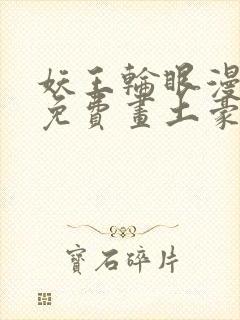 妖王輪眼漫
免費畫土豪
寶石碎片